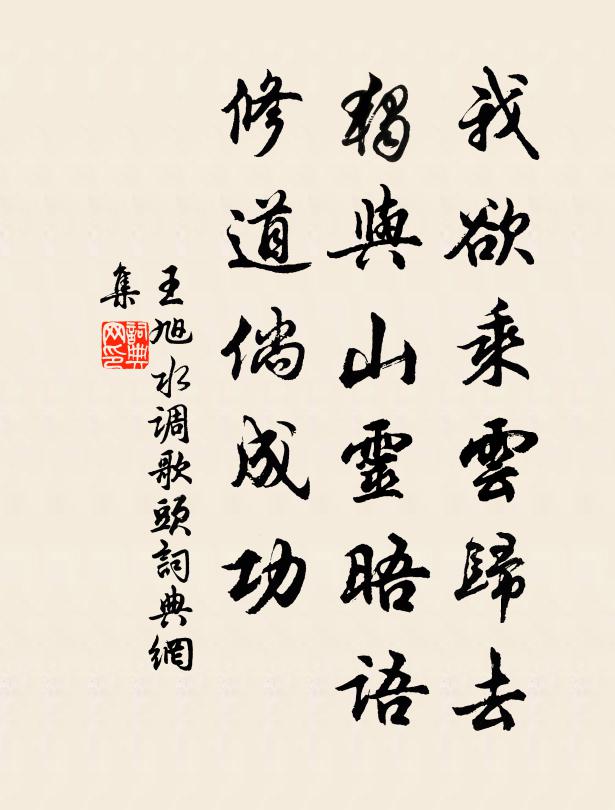 我欲乘雲歸去
獨與山靈晤语
修道倘成功
王旭水调歌頭詞典網
集
詞典網印